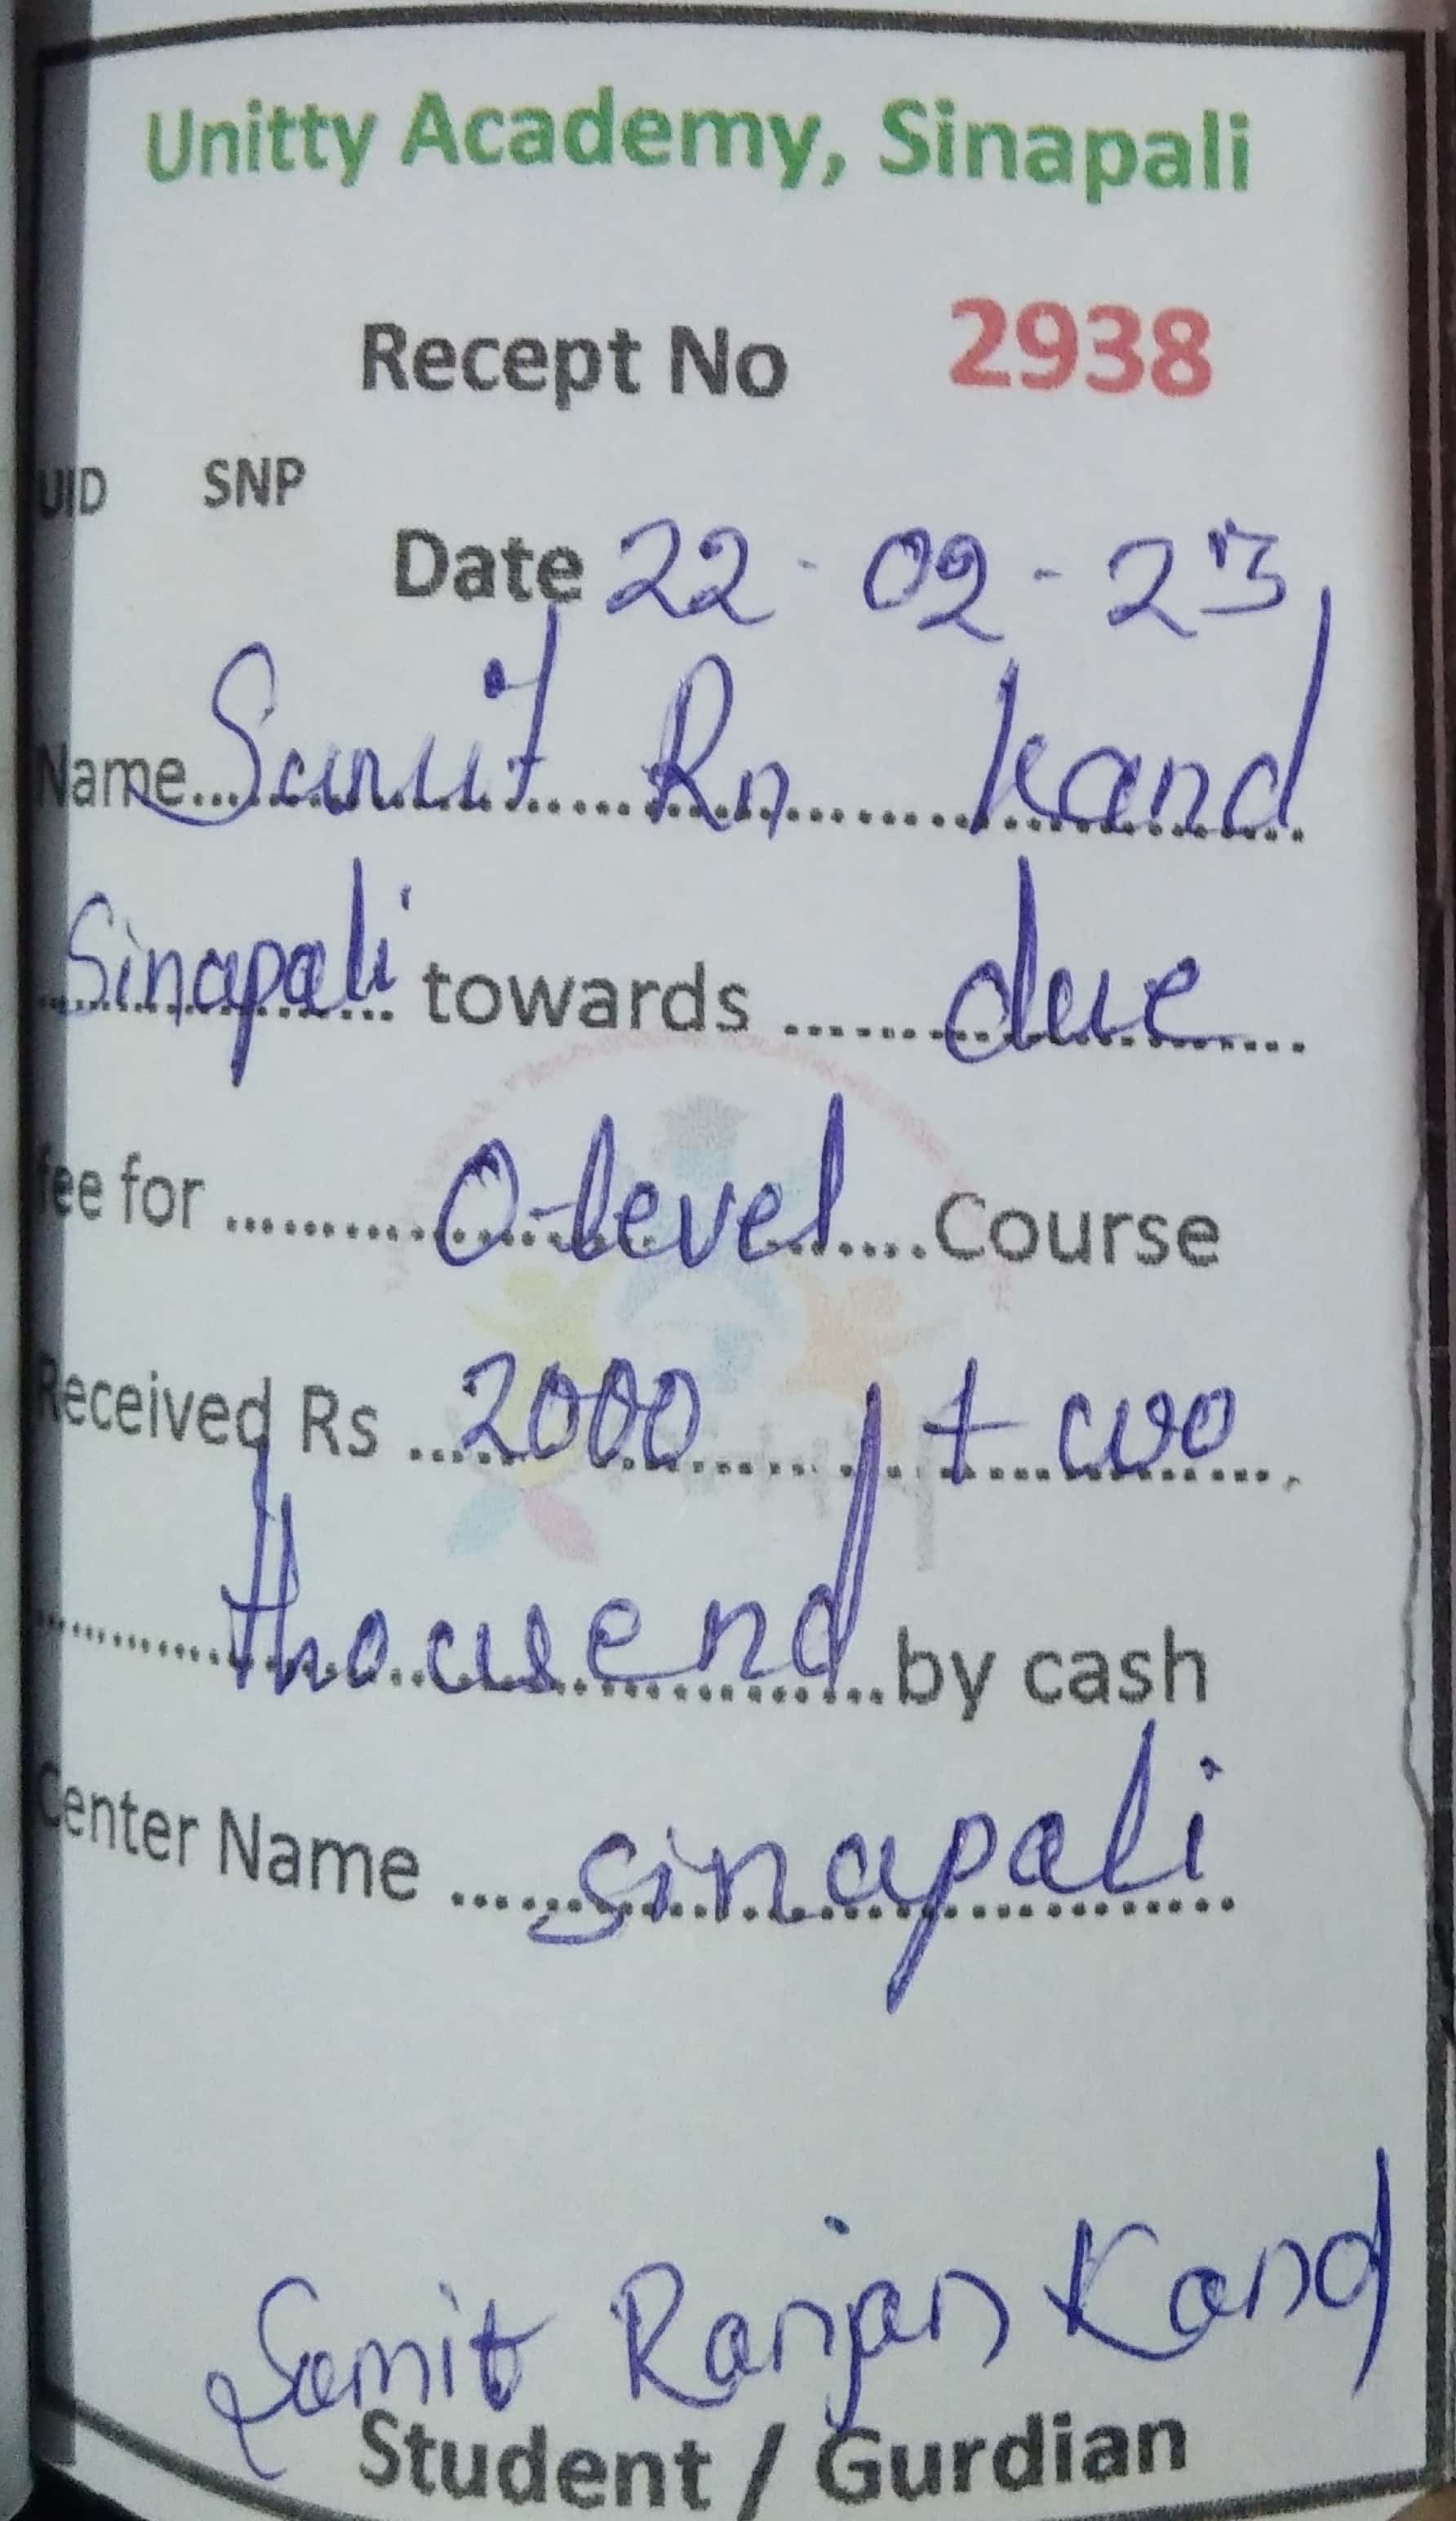 Unitty Academy, Sinapali
Recept No 2938
UID SNP
Date 22-02-23
Name Sumit Rn Kand
Sinapali towards due
fee for O-level Course
Received Rs 2000 two
thousend by cash
Center Name sinapali
Samit Ranjan Kand
Student / Gurdian